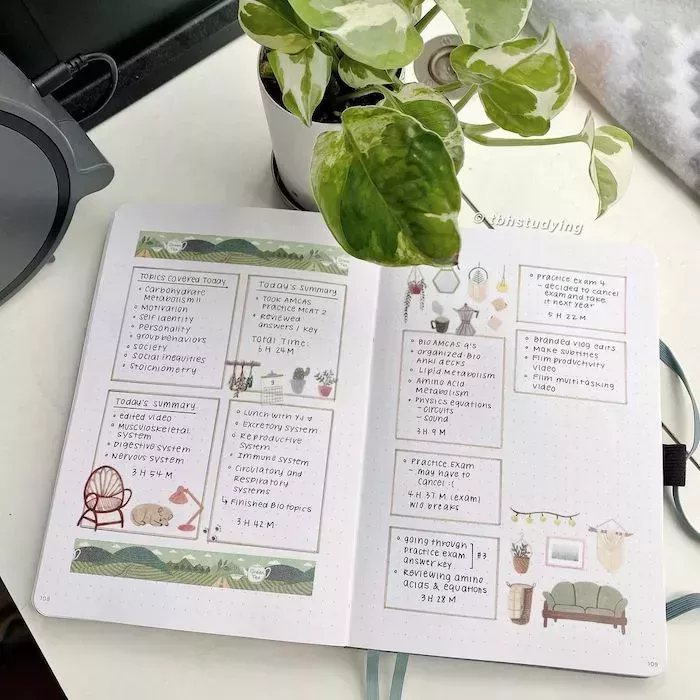 © tbhstudying
Topics Covered Today
Carbohydrate
Metabolism II
Motivation
self identity
personality
group behaviors
society
social inequities
Stoichiometry
Today's Summary
Took AAMCAS
practice MCAT 2
Reviewed
answers / key
Total Time:
6 H 24 M
Today's Summary
edited video
Musculoskeletal
system
Digestive system
Nervous system
3 H 54 M
Lunch with YJ
Excretory system
Reproductive
system
Immune system
Circulatory and
Respiratory
systems
↳ Finished Bio topics
3 H 42 M
108
Bio AAMCAS Q's
Organized Bio
Anki decks
Lipid Metabolism
Amino Acid
Metabolism
Physics equations
- circuits
- sound
3 H 9 M
Practice Exam
- may have to
cancel :(
4 H 37 M (exam)
w/o breaks
going through
practice exam
answer key
#3
Reviewing amino
acids & equations
3 H 28 M
Practice Exam 4
- decided to cancel
exam and take
it next year
5 H 22 M
Branded vlog edits
Make subtitles
Film productivity
video
Film multitasking
video
109